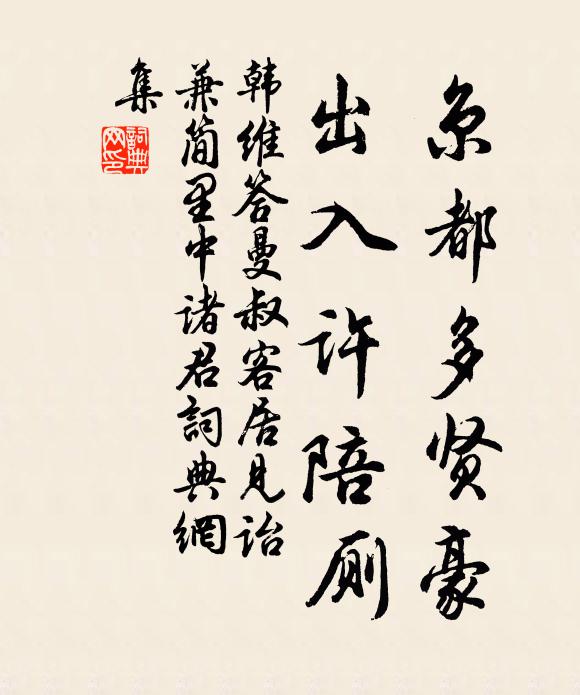 京都多贤豪
出入许陪厕
韩维答曼叔客居见诒
兼简里中诸君詞典網
集
詞典网印